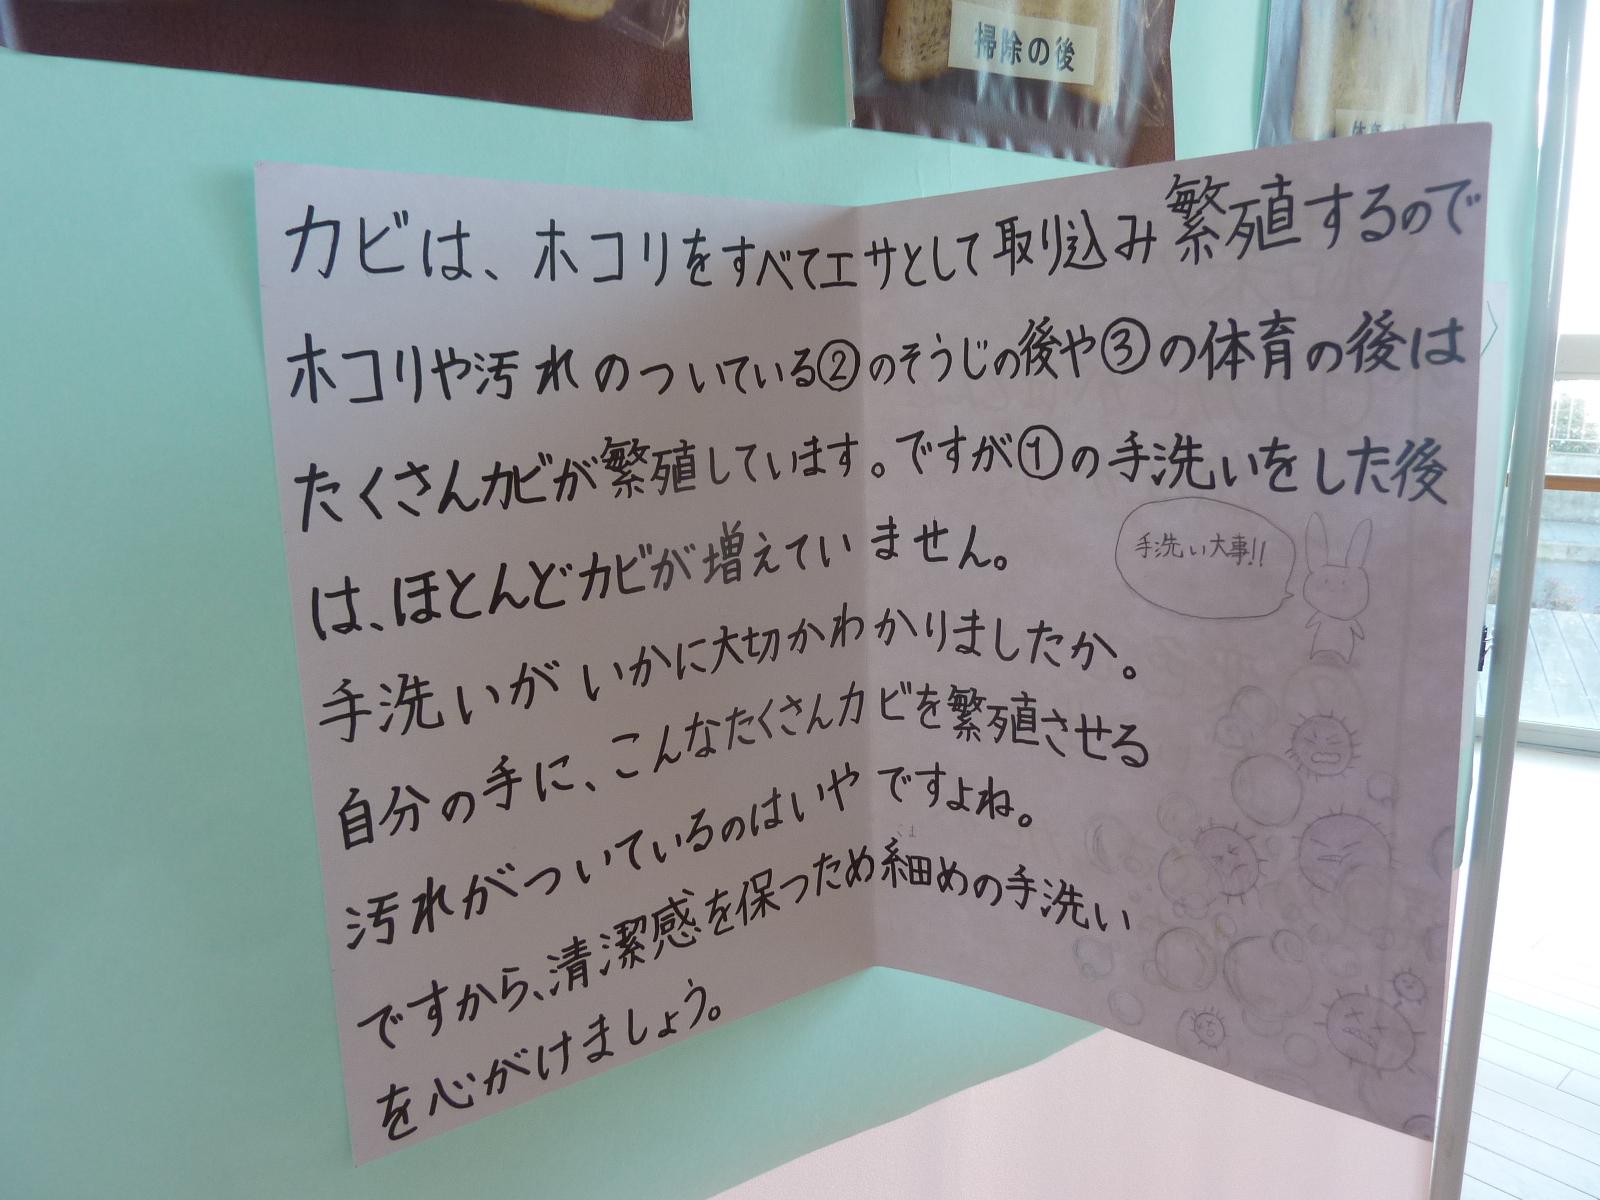 掃除の後
カビは、ホコリをすべてエサとして取り込み繁殖するので
ホコリや汚れのついている②のそうじの後や③の体育の後は
たくさんカビが繁殖しています。ですが①の手洗いをした後
は、ほとんどカビが増えていません。
手洗い大事!!
手洗いがいかに大切かわかりましたか。
自分の手に、こんなたくさんカビを繁殖させる
汚れがついているのはいやですよね。
こま
ですから、清潔感を保つため細めの手洗い
を心がけましょう。